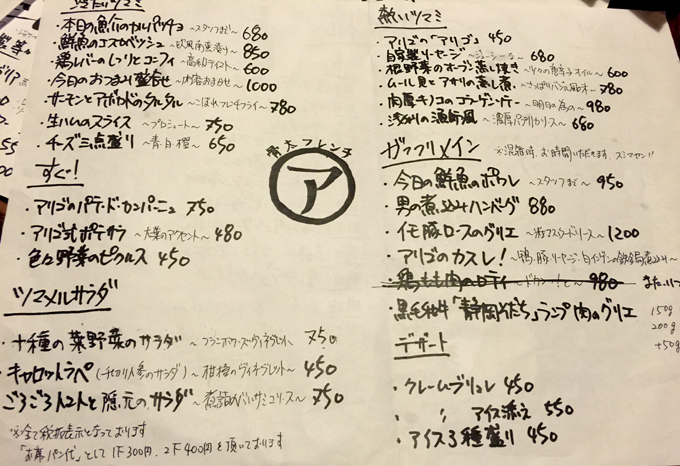 冷たいツマミ
・本日の魚介のカルパッチョ ～スタッフまで～ 680
・鮮魚のエスカベッシュ ～欧風南蛮漬け～ 850
・鶏レバーのしっとりコンフィ 600
・今日のおつまみ盛合せ ～内容おまかせ～ 1000
・サーモンとアボカドのタルタル ～こぼれフレンチフライ～ 780
・生ハムのスライス ～プロシュート～ 750
・チーズ三点盛り ～青 白 橙～ 650
すぐ!
・アリゴのパテ・ド・カンパーニュ 750
・アリゴ式ポテサラ ～大葉のアクセント～ 480
・色々野菜のピクルス 450
ツマメルサラダ
・十種の葉野菜のサラダ ～フランボワーズヴィネグレット～ 750
・キャロットラペ (千切り人参のサラダ) ～柑橙のヴィネグレット～ 450
・ごろごろトマトと隠元のサラダ ～煮詰めバルサミコソース～ 750
※全て税抜表示となっております
「お席・パン代」として 1F 300円、2F 400円を頂いております
ア
温かいツマミ
・アリゴの「アリゴ」 450
・自家製ソーセージ ～ジューシーな～ 680
・根野菜のオーブン蒸し焼き 600
・ムール貝とアサリの蒸し煮 980
・肉厚キノコのブルゴーニュバター ～明日の為の～ 980
・浅利の漁師風 ～濃厚パプリカソース～ 680
ガッツリメイン
※混雑時、お時間いただきます、スミマセン!!
・今日の鮮魚のポワレ ～スタッフまで～ 950
・男の煮込みハンバーグ 880
・イモ豚ロースのグリエ ～粒マスタードソース～ 1200
・アリゴのカスレ! ～鴨・豚・ソーセージ・白インゲンの鉄鍋煮込み～
・鶏もも肉のロティ ～ドカン!と～ 980
・黒毛和牛「静岡そだち」ランプ肉のグリエ 150g
200g
+50g
デザート
・クレームブリュレ 450
・ 〃 アイス添え 550
・アイス3種盛り 450